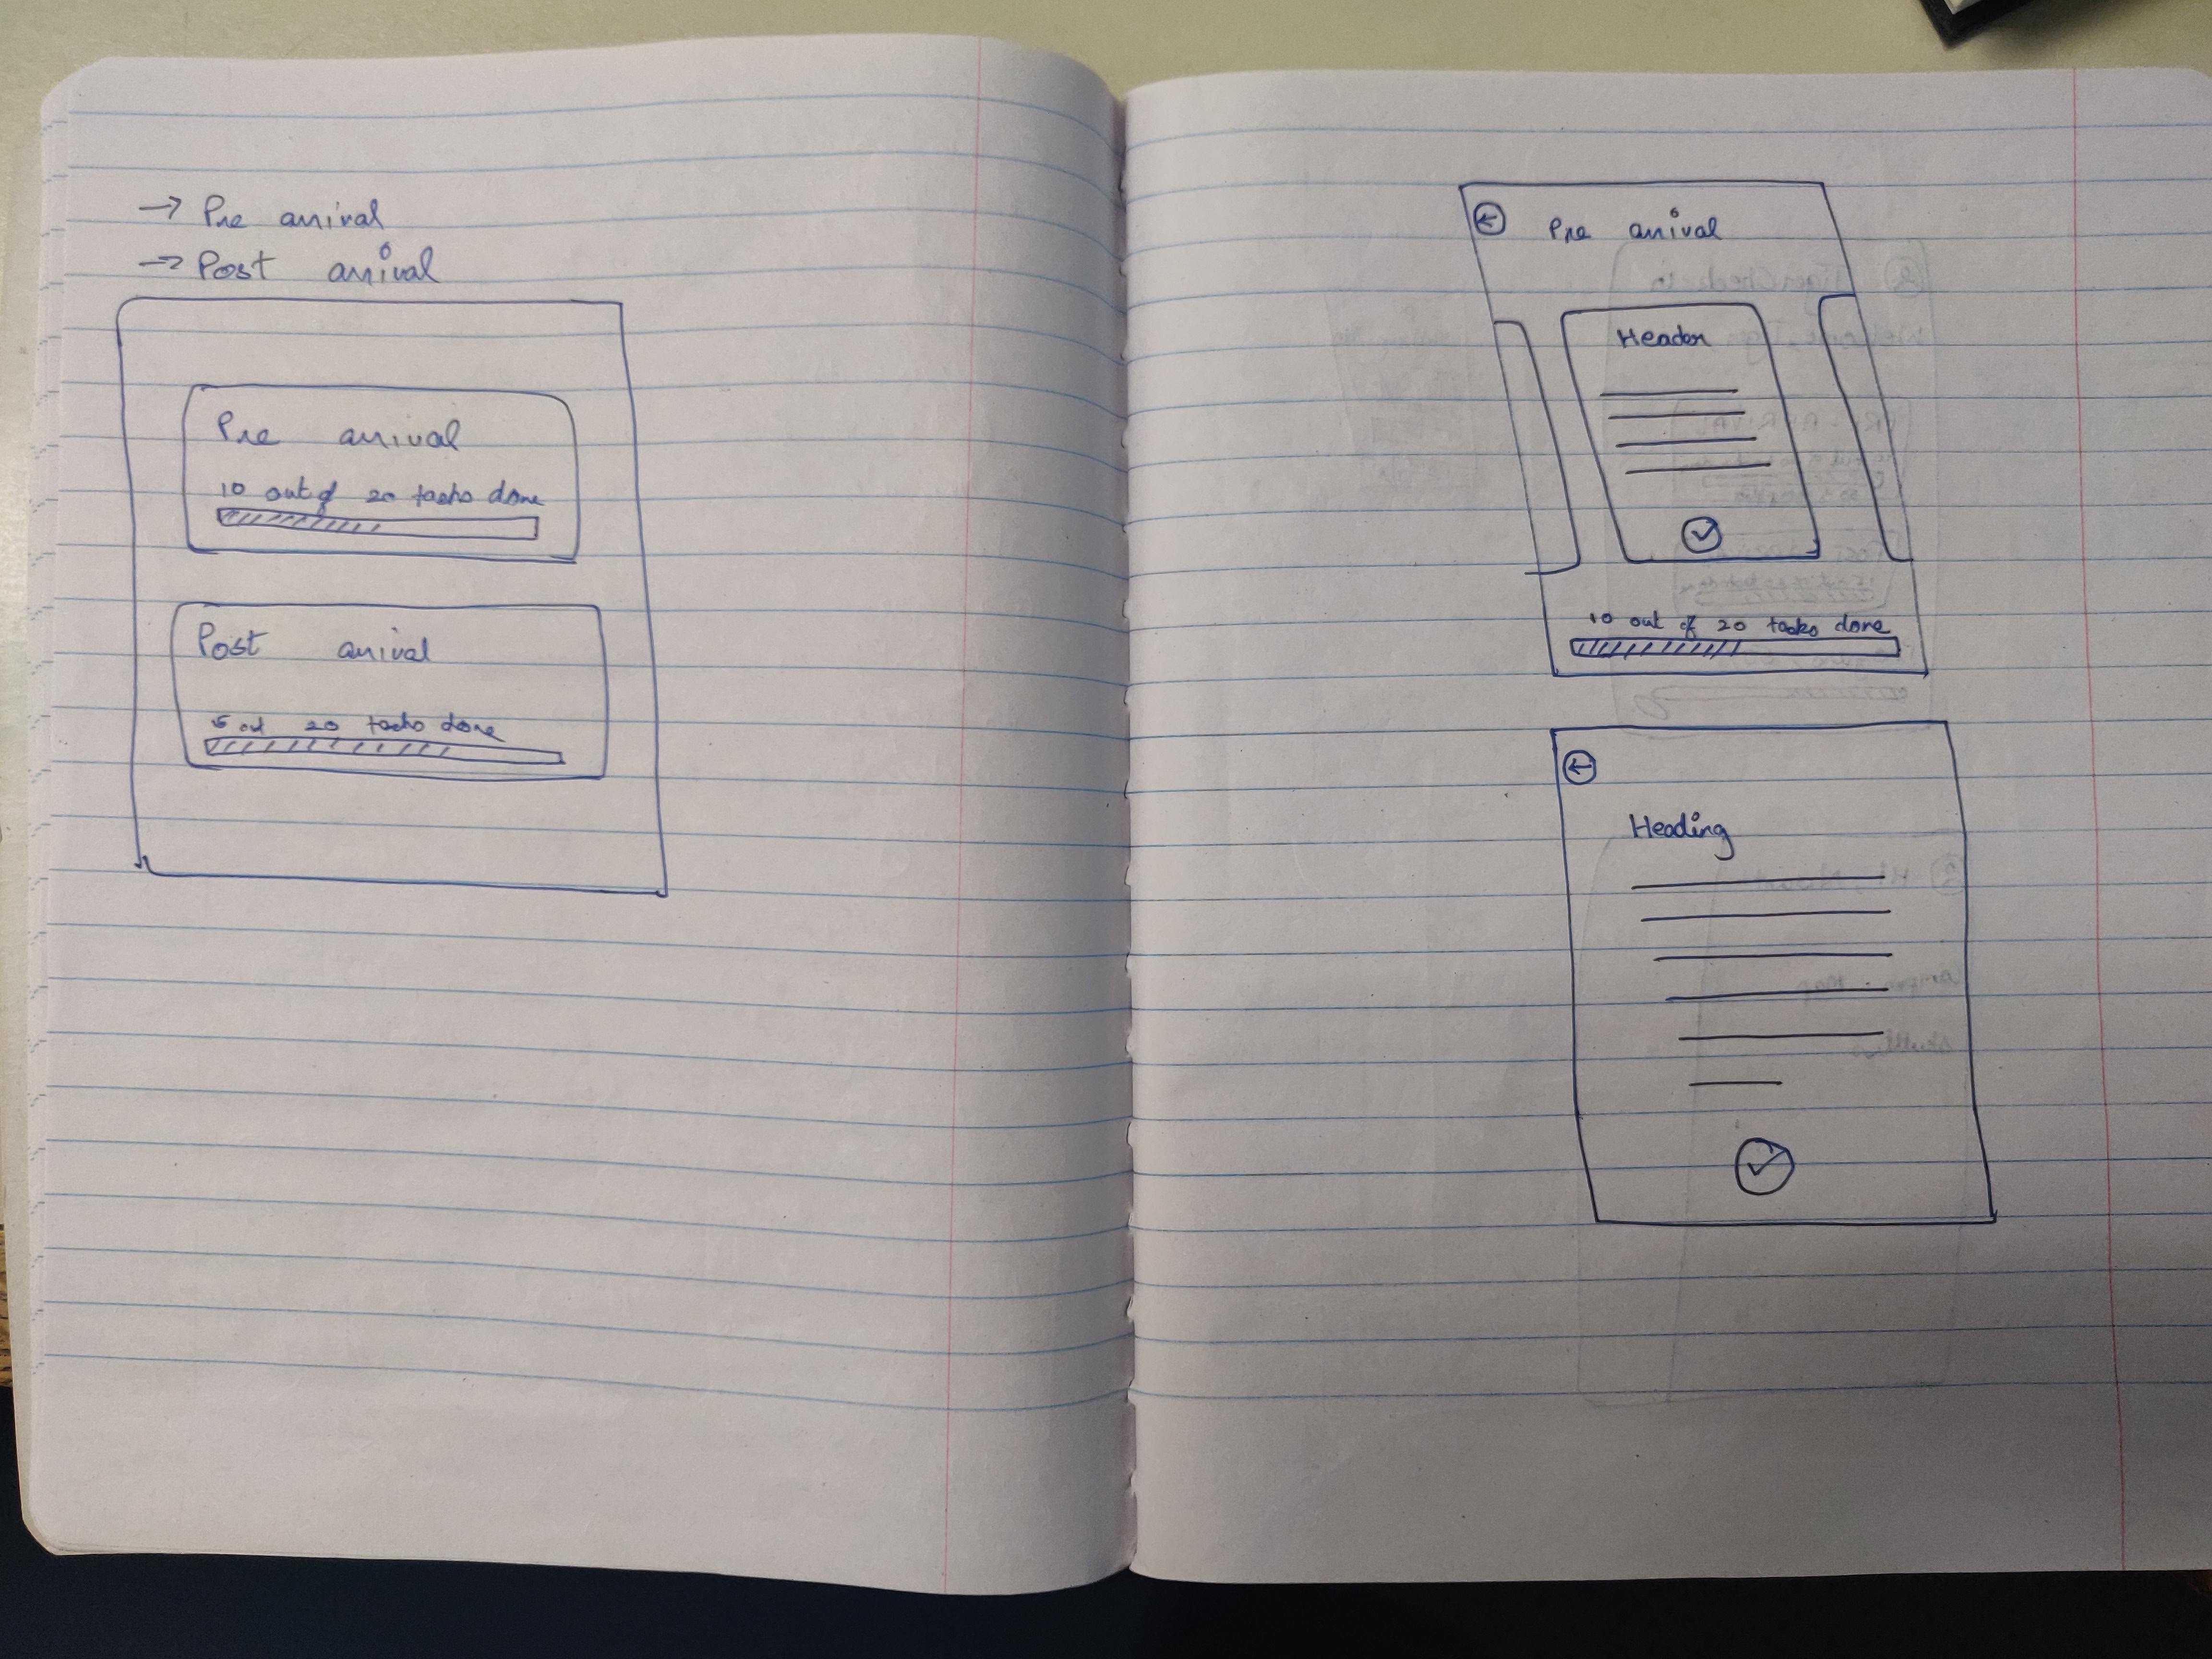 → Pre arrival
→ Post arrival
Pre arrival
10 out of 20 tasks done
Post arrival
15 out 20 tasks done
← Pre arrival
Header
10 out of 20 tasks done
←
Heading